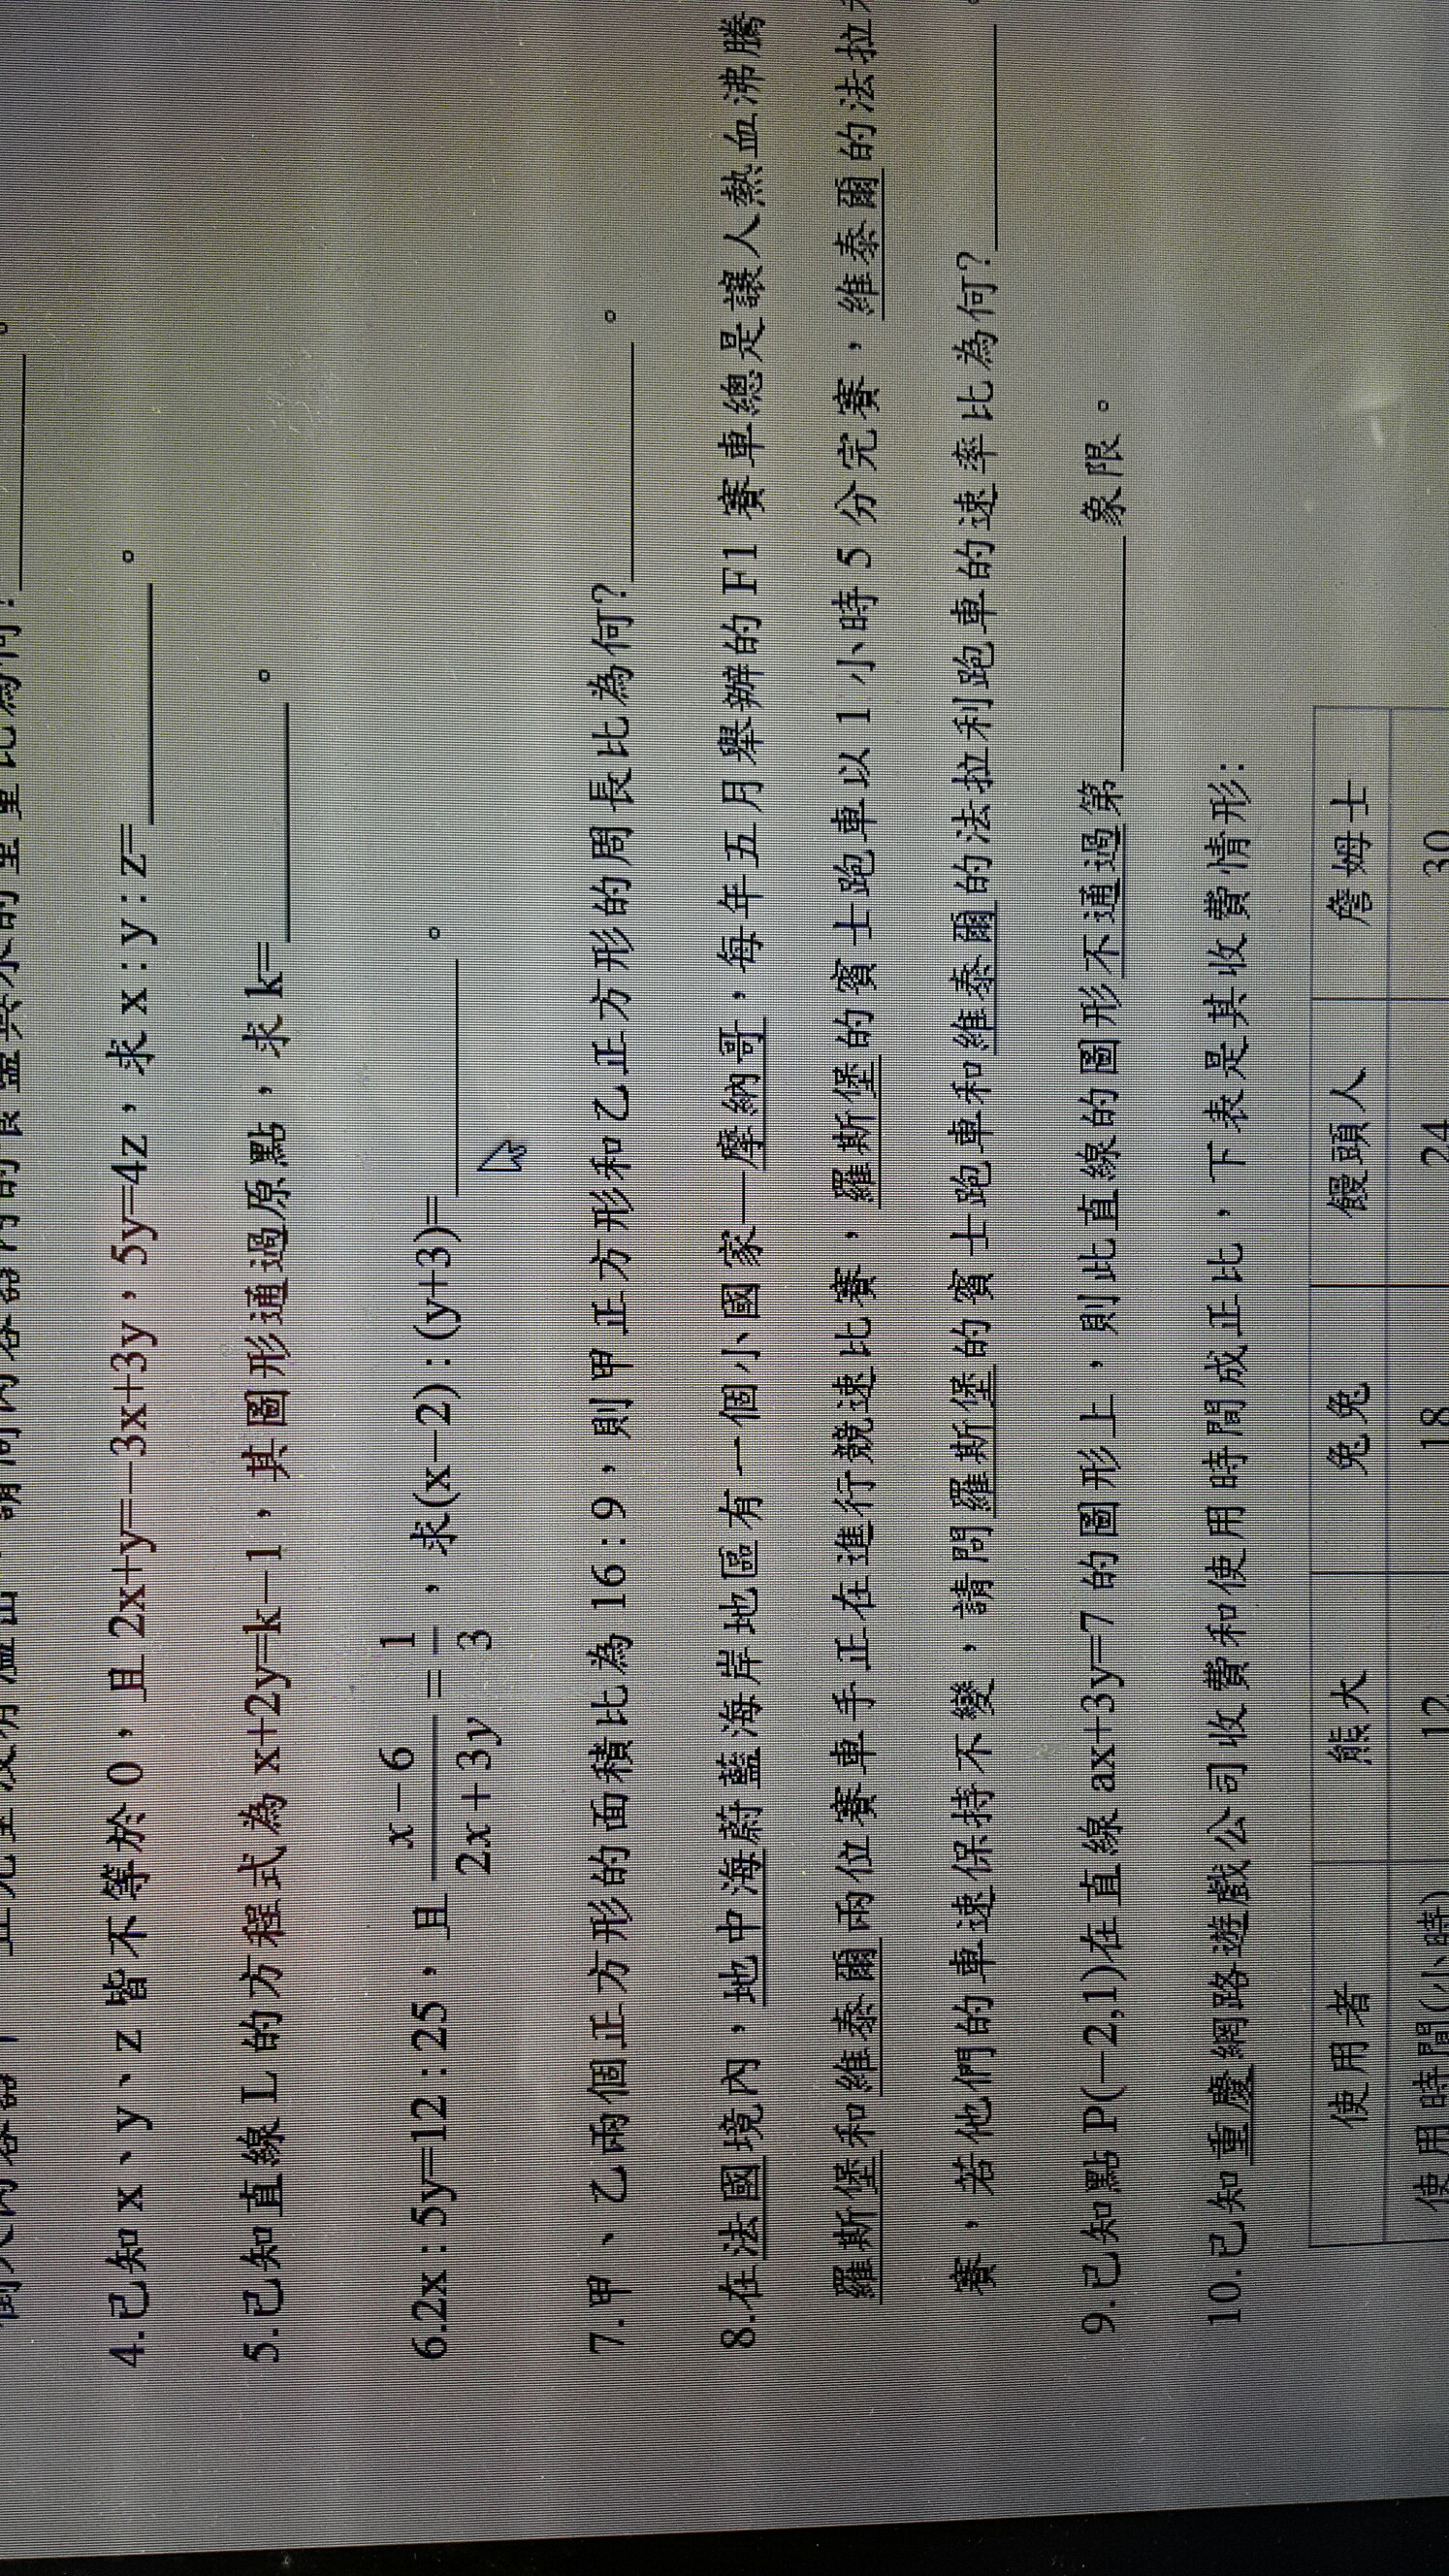 4.已知 x、y、z 皆不等於 0，且 2x+y=－3x+3y，5y=4z，求 x : y : z=________。
5.已知直線 L 的方程式為 x+2y=k－1，其圖形通過原點，求 k=________。
6.2x : 5y=12 : 25，且 x－6/2x＋3y = 1/3，求(x－2) : (y+3)=________。
7.甲、乙兩個正方形的面積比為 16 : 9，則甲正方形和乙正方形的周長比為何?________。
8.在法國境內，地中海蔚藍海岸地區有一個小國家—摩納哥，每年五月舉辦的 F1 賽車總是讓人熱血沸騰
羅斯堡和維泰爾兩位賽車手正在進行競速比賽，羅斯堡的賓士跑車以 1 小時 5 分完賽，維泰爾的法拉
賽，若他們的車速保持不變，請問羅斯堡的賓士跑車和維泰爾的法拉利跑車的速率比為何?________。
9.已知點 P(－2,1)在直線 ax+3y=7 的圖形上，則此直線的圖形不通過第________象限。
10.已知重慶網路遊戲公司收費和使用時間成正比，下表是其收費情形:
使用者 熊大 兔兔 饅頭人 詹姆士
使用時間(小時) 12 18 24 30